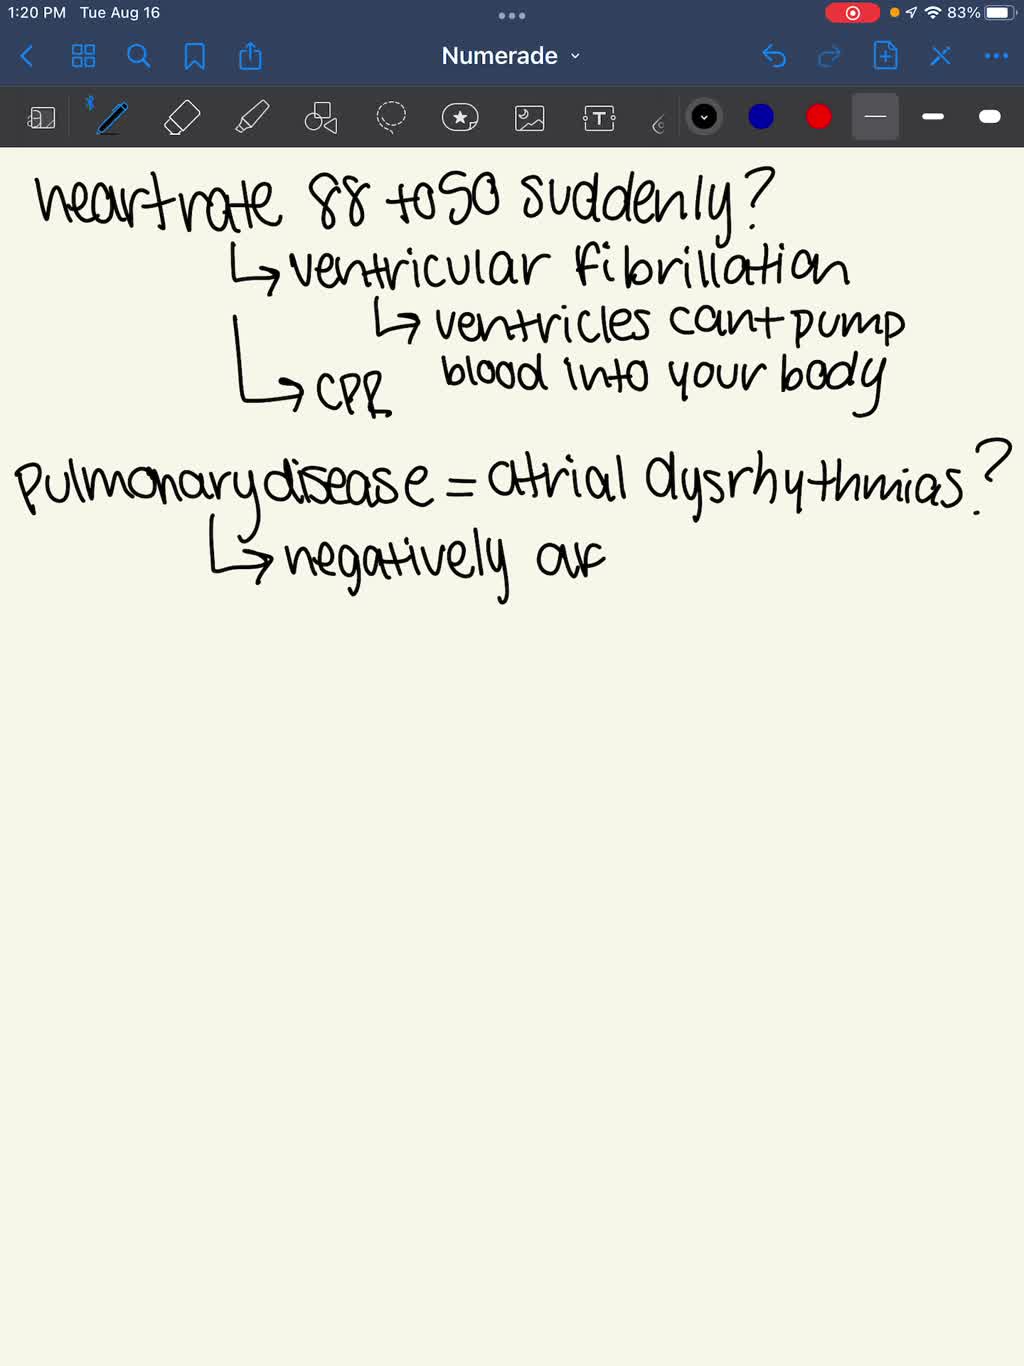 1:20 PM Tue Aug 16
83%
Numerade
heartrate 88 to 50 suddenly?
ventricular fibrillation
ventricles cant pump
blood into your body
CPR
pulmonary disease = atrial dysrhythmias?
negatively